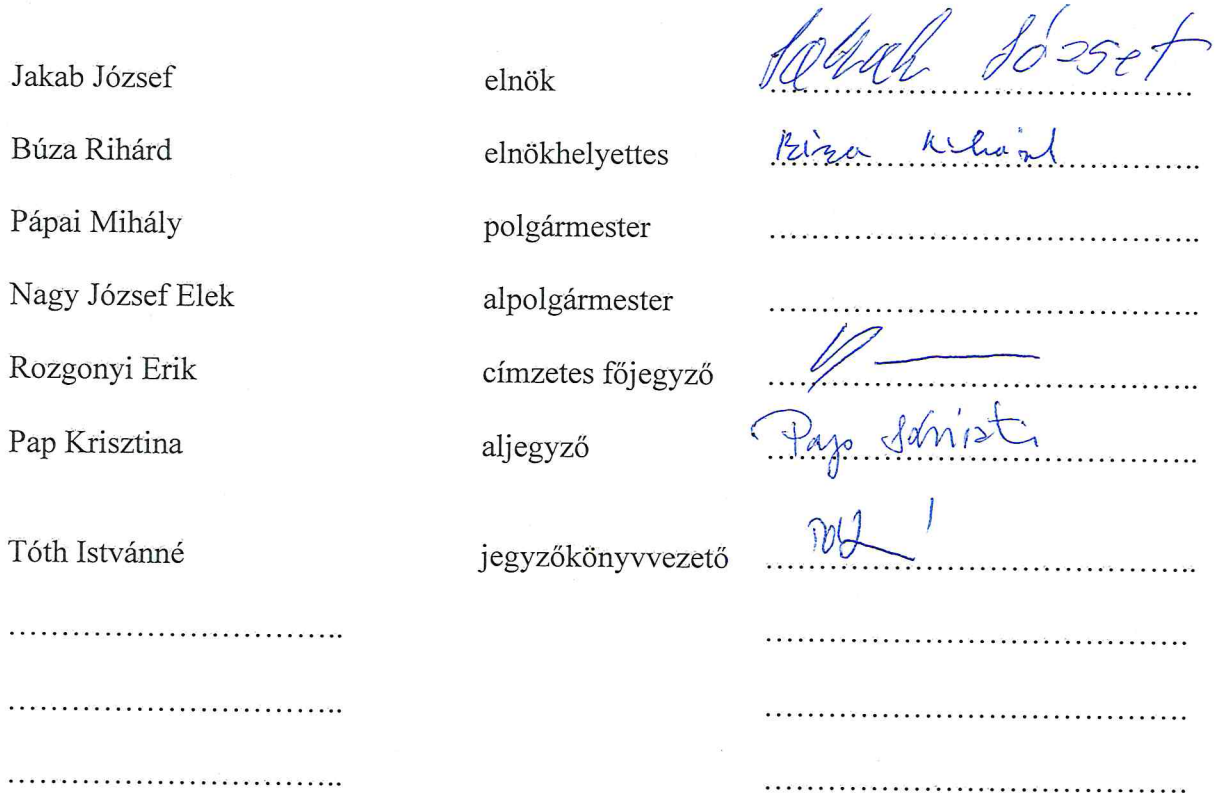 Jakab József elnök Jakab József
Búza Rihárd elnökhelyettes Búza Rihárd
Pápai Mihály polgármester ........................................
Nagy József Elek alpolgármester ........................................
Rozgonyi Erik címzetes főjegyző ........................................
Pap Krisztina aljegyző Pap
Tóth Istvánné jegyzőkönyvvezető ........................................
............................... ........................................
............................... ........................................
............................... ........................................